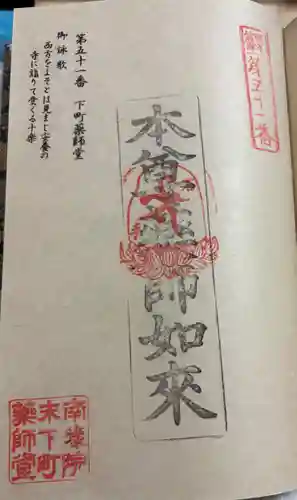 第五十一番
本尊薬師如來
第五十一番　下町薬師堂
御詠歌
西方をよそとは見まじ安養の
寺に詣りて受くる十楽
南
院
末下町
藥師堂